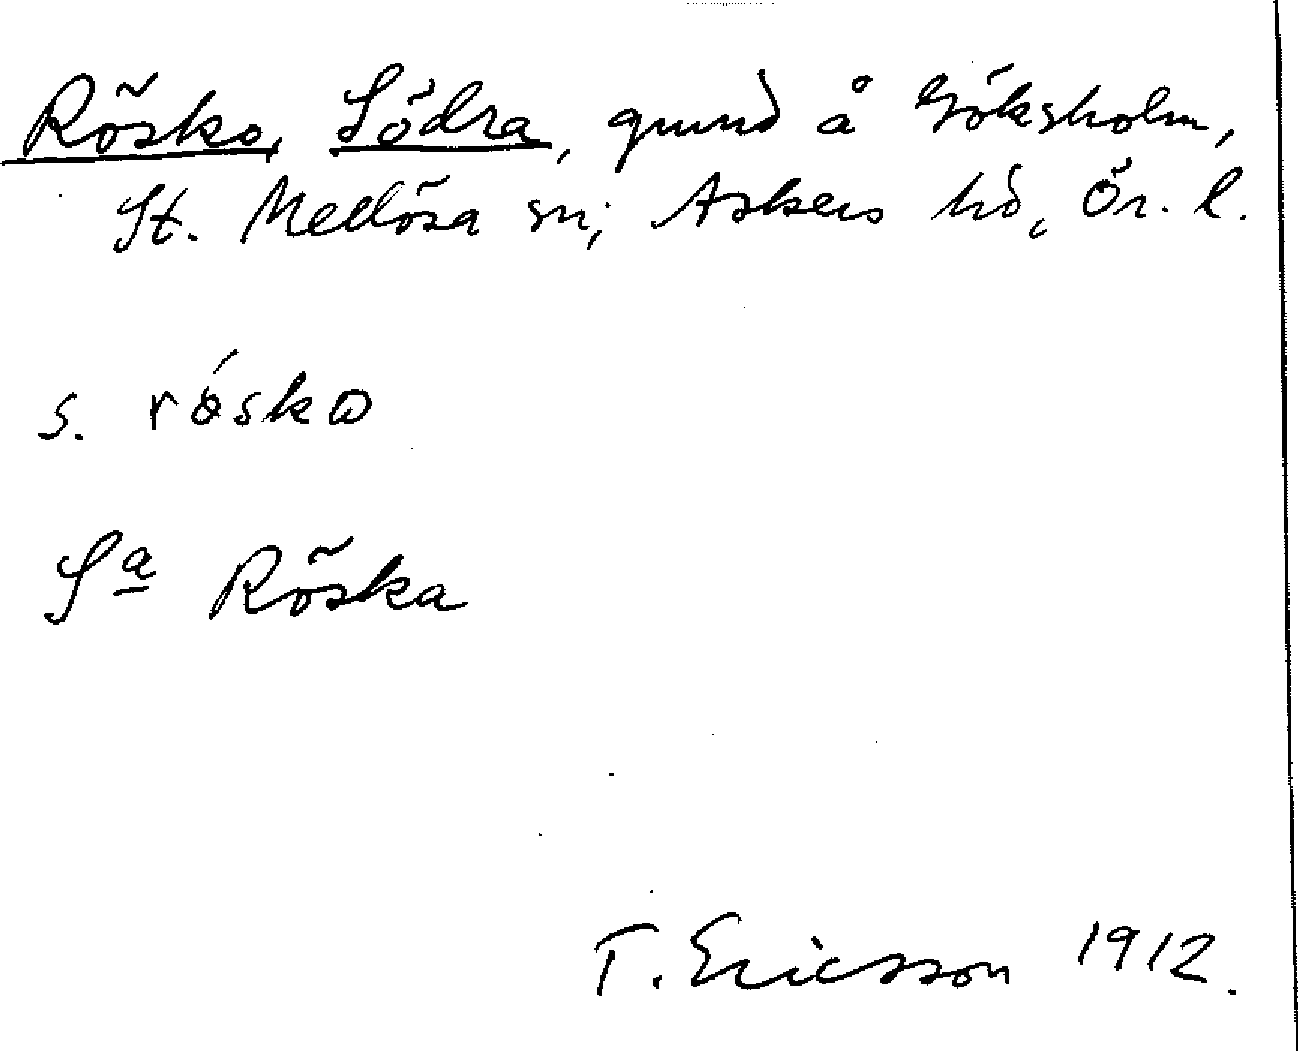 Rösko, Södra, grund å Göksholm,
St. Mellösa sn, Askers hd, Ör. l.
s. rösko
Sa Röska
T. Ericsson 1912.